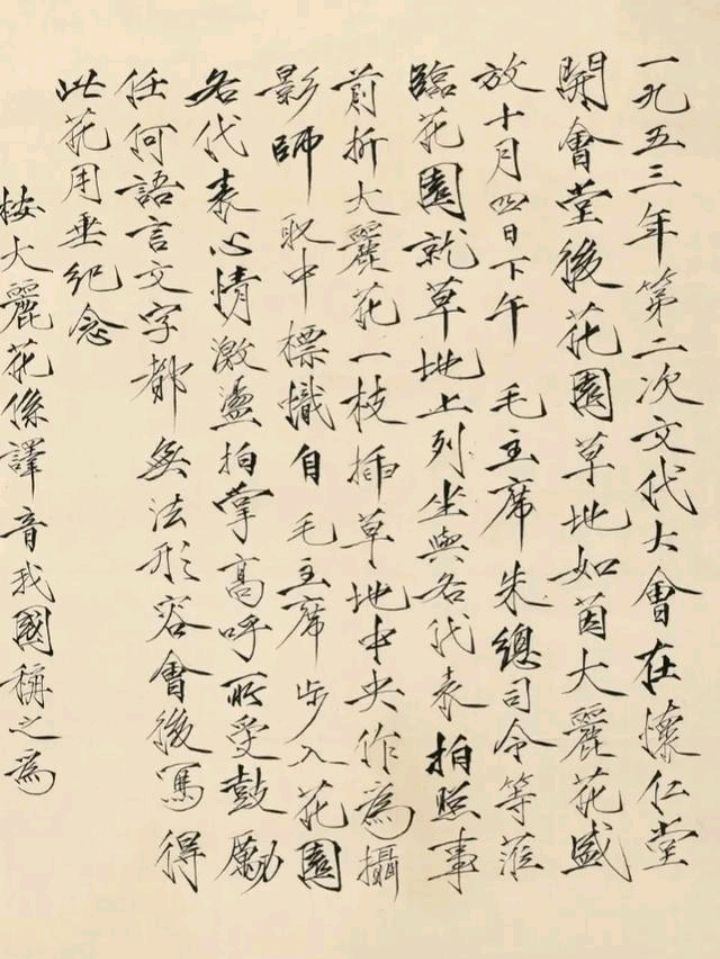 一九五三年第二次文代大會在懷仁堂
開會堂後花園草地如茵大麗花盛
放十月四日下午 毛主席朱總司令等蒞
臨花園就草地上列坐與各代表拍照事
前折大麗花一枝插草地中央作為攝
影師取中標幟自 毛主席步入花園
各代表心情激盪拍掌高呼所受鼓勵
任何語言文字都無法形容會後寫得
此花用垂紀念
按大麗花係譯音我國稱之為